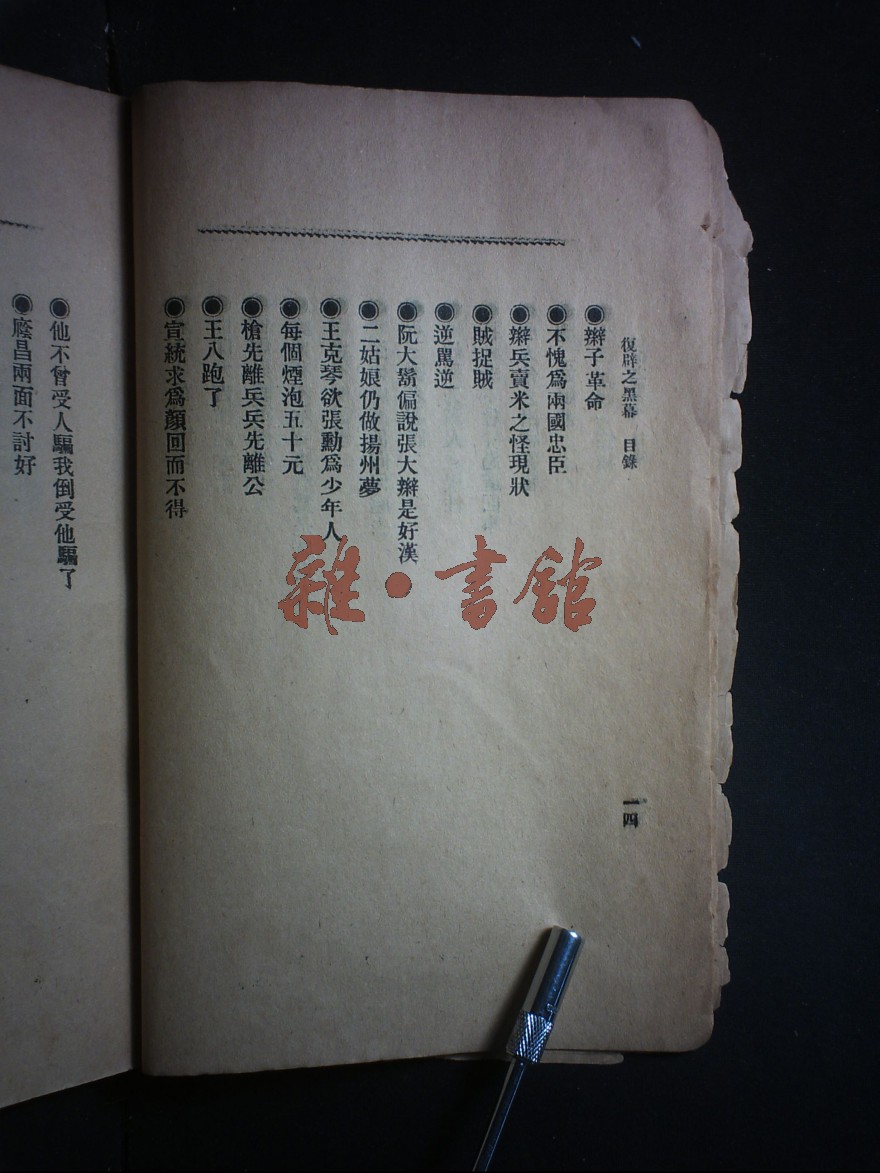 復辟之黑幕 目錄
一四
◉辮子革命
◉不愧爲兩國忠臣
◉辮兵賣米之怪現狀
◉賊捉賊
◉逆罵逆
◉阮大鬍偏說張大辮是好漢
◉二姑娘仍做揚州夢
◉王克琴欲張勳爲少年人
◉每個煙泡五十元
◉槍先離兵兵先離公
◉王八跑了
◉宣統求爲顏回而不得
◉他不曾受人騙我倒受他騙了
◉廕昌兩面不討好
雜·書館